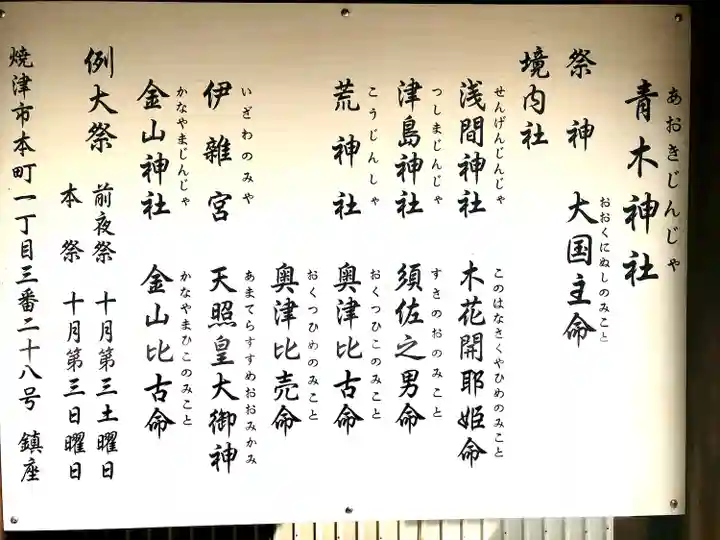 あおきじんじゃ
青木神社
祭神 大国主命
おおくにぬしのみこと
境内社
せんげんじんじゃ このはなさくやひめのみこと
浅間神社 木花開耶姫命
つしまじんじゃ すさのおのみこと
津島神社 須佐之男命
こうじんしゃ おくつひこのみこと
荒神社 奥津比古命
おくつひめのみこと
奥津比売命
いざわのみや あまてらすすめおおみかみ
伊雜宮 天照皇大御神
かなやまじんじゃ かなやまひこのみこと
金山神社 金山比古命
例大祭 前夜祭 十月第三土曜日
本祭 十月第三日曜日
焼津市本町一丁目三番二十八号 鎮座